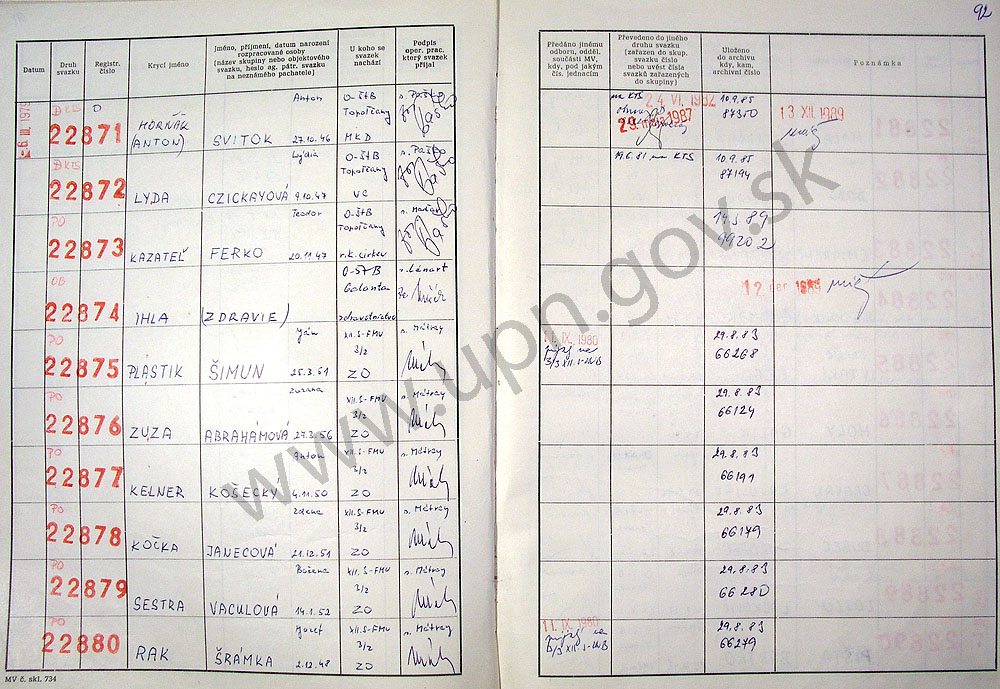 92
Datum
Druh svazku
Registr. číslo
Krycí jméno
Jméno, příjmení, datum narození rozpracované osoby (název skupiny nebo objektového svazku, heslo ag. pátr. svazku na neznámého pachatele)
U koho se svazek nachází
Podpis oper. prac. který svazek přijal
Předáno jinému odboru, odděl. součásti MV, kdy, pod jakým čís. jednacím
Převedeno do jiného druhu svazku (zařazen do skup. svazku číslo nebo uvést čísla svazků zařazených do skupiny)
Uloženo do archivu kdy, kam, archivní číslo
Poznámka
22871 HORŇÁK (ANTON) SVITOK Anton 27.10.46 O-ŠtB Topoľčany MKD
na KTS 24 VI. 1982
29. 1987
10.9.85 87350
13 XII. 1989
DKTS 22872 LYDA CZICKAYOVÁ Lýdia 9.10.47 O-ŠtB Topoľčany VC
19.6.81 na KTS
10.9.85 87194
PO 22873 KAZATEĽ FERKO Teodor 20.11.47 O-ŠtB Topoľčany r.k. cirkev
99202
OB 22874 IHLA (ZDRAVIE) O-ŠtB Galanta zdravotníctvo
12 1989
PO 22875 PLASTIK ŠIMUN Ján 25.3.51 XII.S-FMV 3/2 ZO s. Mátray
11. IX. 1980
29.8.83 66268
PO 22876 ZUZA ABRAHÁMOVÁ Zuzana 27.3.56 XII.S-FMV 3/2 ZO s. Mátray
29.8.83 66124
PO 22877 KELNER KOŠECKÝ Anton 4.11.50 XII.S-FMV 3/2 ZO s. Mátray
29.8.83 66191
PO 22878 KOČKA JANECOVÁ Zdena 21.12.51 XII.S-FMV 3/2 ZO s. Mátray
29.8.83 66179
PO 22879 SESTRA VACULOVÁ Božena 14.1.52 XII.S-FMV 3/2 ZO s. Mátray
29.8.83 66280
PO 22880 RAK ŠRÁMKA Jozef 2.12.48 XII.S-FMV 3/2 ZO s. Mátray
11. IX. 1980
29.8.83 66279
MV č. skl. 734
www.upn.gov.sk